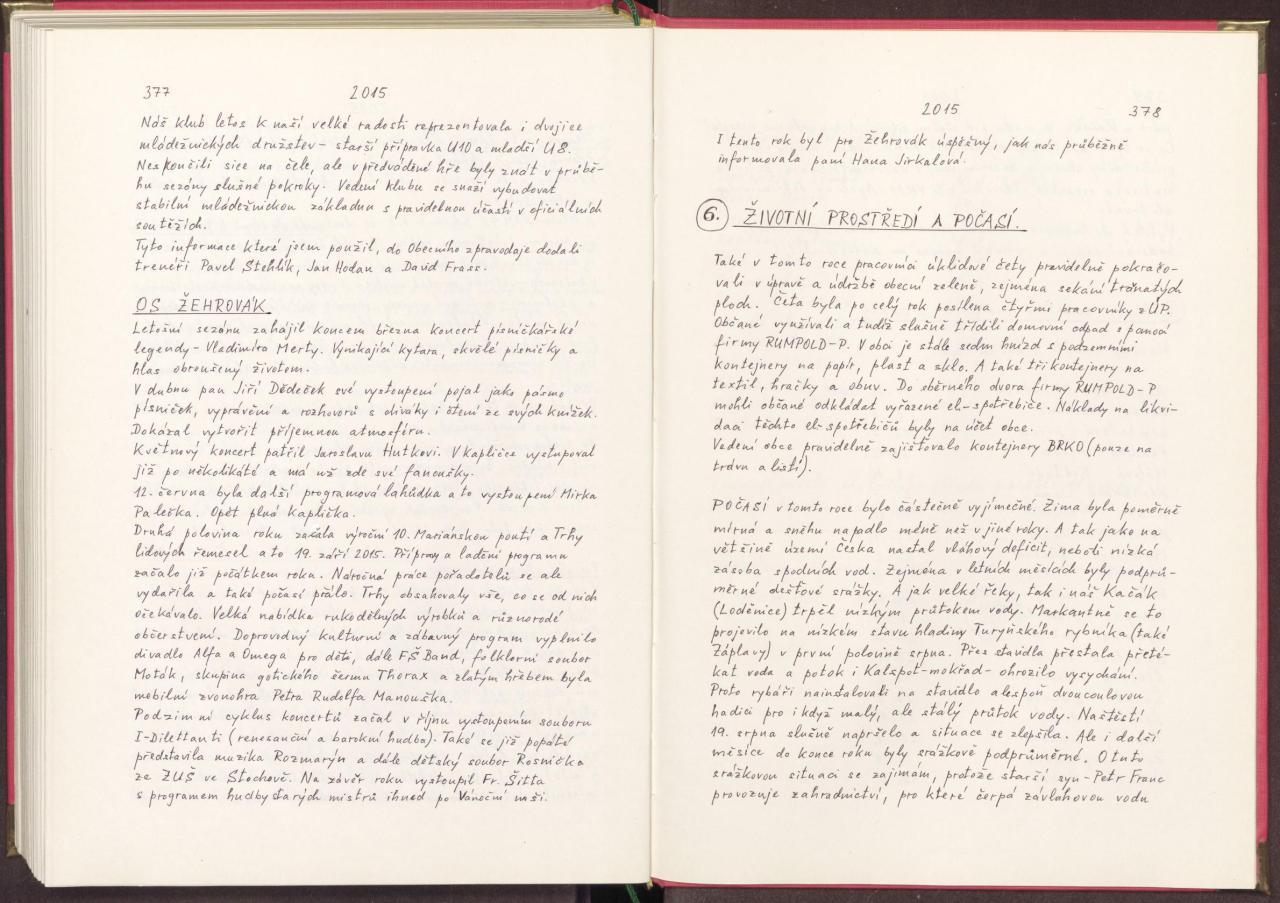 377
2015
Náš klub letos k naší velké radosti reprezentovala i dvojice
mládežnických družstev - starší přípravka U10 a mladší U8.
Neskončili sice na čele, ale v předváděné hře byly znát v průbě-
hu sezóny slušné pokroky. Vedení klubu se snaží vybudovat
stabilní mládežnickou základnu s pravidelnou účastí v oficiálních
soutěžích.
Tyto informace které jsem použil, do Obecního zpravodaje dodali
trenéři Pavel Stehlík, Jan Hodan a David Frass.
OS ŽEHROVÁK
Letošní sezónu zahájil koncem března koncert písničkářské
legendy - Vladimíra Merty. Vynikající kytara, skvělé písničky a
hlas obroušený životem.
V dubnu pan Jiří Dědeček své vystoupení pojal jako pásmo
písniček, vyprávění a rozhovorů s diváky i čtení ze svých knížek.
Dokázal vytvořit příjemnou atmosféru.
Květnový koncert patřil Jaroslavu Hutkovi. V kapličce vystupoval
již po několikáté a má už zde své fanoušky.
12. června byla další programová lahůdka a to vystoupení Mirka
Palečka. Opět plná kaplička.
Druhá polovina roku začala výroční 10. Mariánskou poutí a Trhy
lidových řemesel a to 19. září 2015. Přípravy a ladění programu
začalo již počátkem roku. Náročná práce pořadatelů se ale
vydařila a také počasí přálo. Trhy obsahovaly vše, co se od nich
očekávalo. Velká nabídka rukodělných výrobků a různorodé
občerstvení. Doprovodný kulturní a zábavný program vyplnilo
divadlo Alfa a Omega pro děti, dále FŠ Band, folklorní soubor
Moták, skupina gotického šermu Thorax a zlatým hřebem byla
mobilní zvonohra Petra Rudolfa Manouška.
Podzimní cyklus koncertů začal v říjnu vystoupením souboru
I-Dilettanti (renesanční a barokní hudba). Také se již popáté
představila muzika Rozmarýn a dále dětský soubor Rosnička
ze ZUŠ ve Stochově. Na závěr roku vystoupil Fr. Šitta
s programem hudby starých mistrů ihned po Vánoční mši.
2015
378
I tento rok byl pro Žehrovák úspěšný, jak nás průběžně
informovala paní Hana Jirkalová.
6. ŽIVOTNÍ PROSTŘEDÍ A POČASÍ.
Také v tomto roce pracovníci úklidové čety pravidelně pokračo-
vali v úpravě a údržbě obecní zeleně, zejména sekání travnatých
ploch. Četa byla po celý rok posílena čtyřmi pracovníky z ÚP.
Občané využívali a tudíž slušně třídili domovní odpad s pomocí
firmy RUMPOLD-P. V obci je stále sedm hnízd s podzemními
kontejnery na papír, plast a sklo. A také tři kontejnery na
textil, hračky a obuv. Do sběrného dvora firmy RUMPOLD-P
mohli občané odkládat vyřazené el-spotřebiče. Náklady na likvi-
daci těchto el-spotřebičů byly na účet obce.
Vedení obce pravidelně zajišťovalo kontejnery BRKO (pouze na
trávu a listí).
POČASÍ v tomto roce bylo částečně vyjímečné. Zima byla poměrně
mírná a sněhu napadlo méně než v jiné roky. A tak jako na
většině území Česka nastal vláhový deficit, neboli nízká
zásoba spodních vod. Zejména v letních měsících byly podprů-
měrné dešťové srážky. A jak velké řeky, tak i náš Kačák
(Loděnice) trpěl nízkým průtokem vody. Markantně se to
projevilo na nízkém stavu hladiny Turyňského rybníka (také
Záplavy) v první polovině srpna. Přes stavidla přestala přeté-
kat voda a potok i Kalspot-mokřad - ohrozilo vysychání.
Proto rybáři nainstalovali na stavidlo alespoň dvoucoulovou
hadici pro i když malý, ale stálý průtok vody. Naštěstí
19. srpna slušně napršelo a situace se zlepšila. Ale i další
měsíce do konce roku byly srážkově podprůměrné. O tuto
srážkovou situaci se zajímám, protože starší syn - Petr Franc
provozuje zahradnictví, pro které čerpá závlahovou vodu